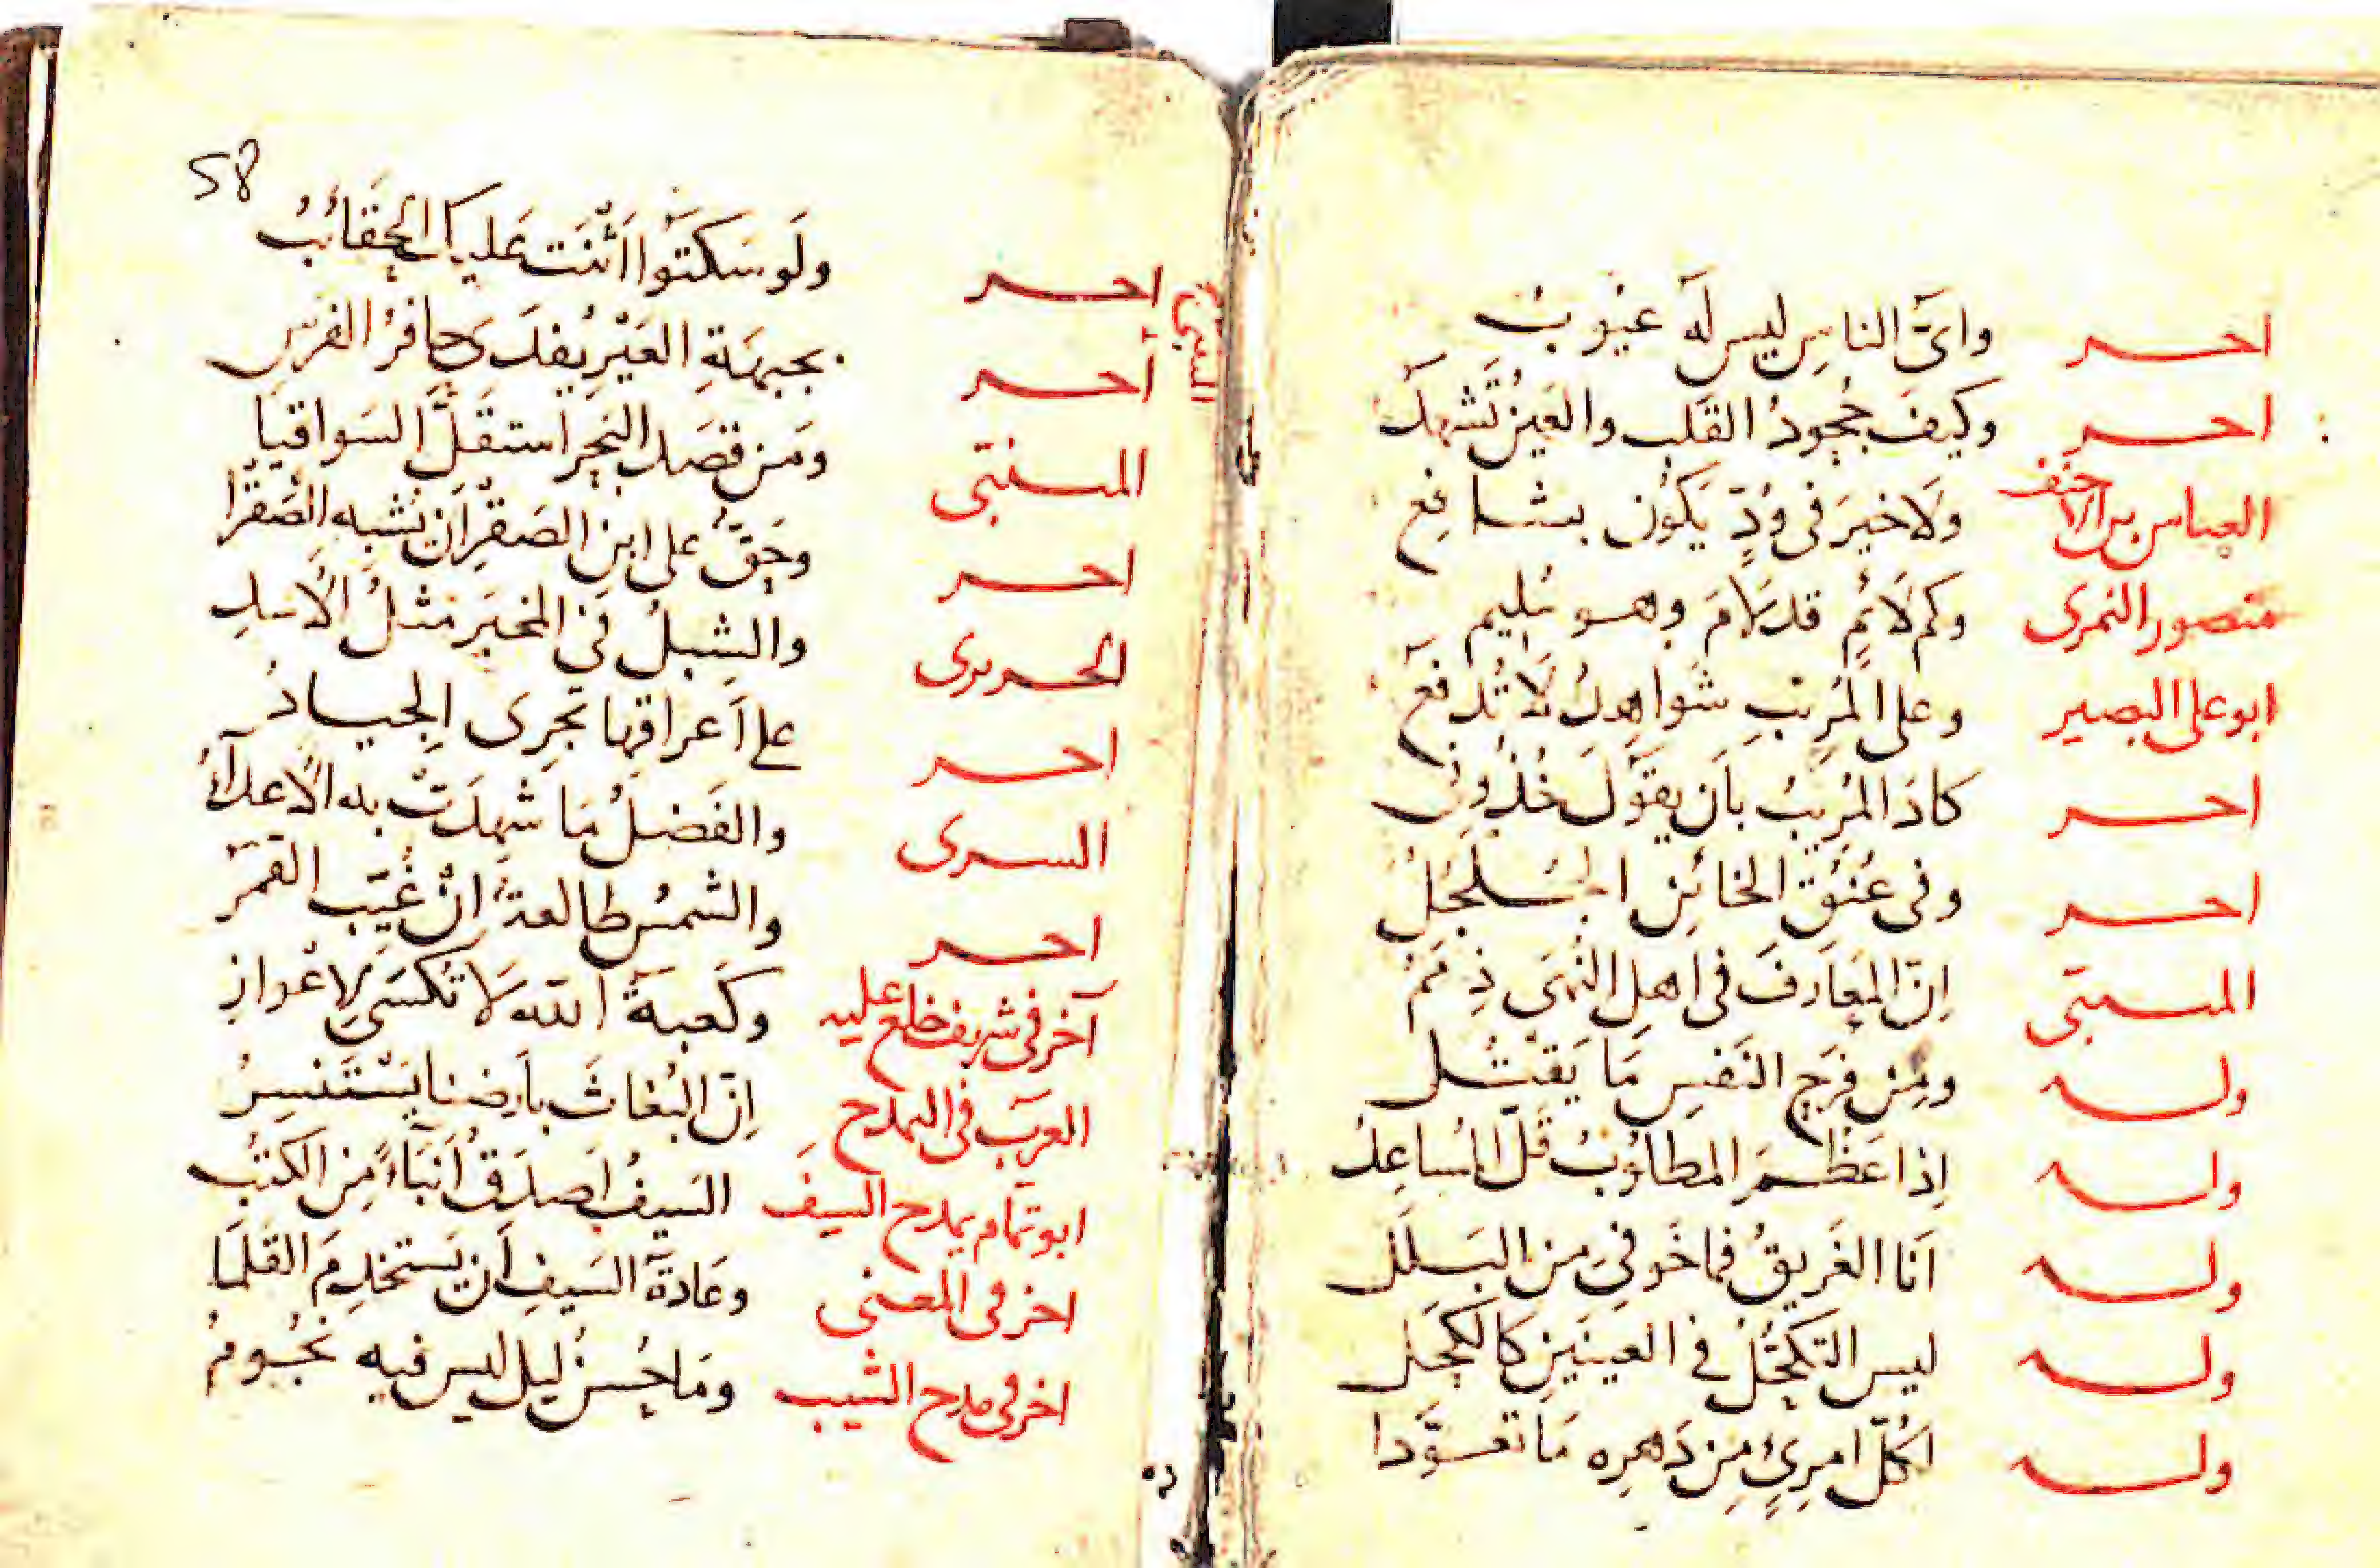 اخر وَاَىُّ الناسِ ليس لَه عُيُوبُ
اخر وكيفَ جُحودُ القَلبِ والعَينُ تَشهدُ
العباس بن الاحنف ولَا خيرَ فى وُدٍّ يَكُون بشافِعِ
منصور النمرى وكم لَائمٍ قد لَامَ وهو مُليم
ابو على البصير وعلى المُرِيبِ شَواهِدٌ لَا تُدفَعُ
اخر كادَ المُرِيبُ بأَن يقوُلَ خُذُونِى
اخر وفى عُنُقِ الخائِنِ الجُلجُلُ
المتنبى اِنّ المَعَارِفَ فى اهلِ النُهَى ذِمَمُ
وله ومِن فرَحِ النَفسِ مَا يَقتُل
وله اِذا عَظُمَ المطلُوبُ قَلّ المُساعِدُ
وله اَنا الغَريقُ فما خَوفى من البَللِ
وله ليس التَكحّلُ فى العينَينِ كَالكَحَلِ
وله لكلّ امرِئٍ مِن دَهرِه مَا تعَوَّدا
58
اخر ولَو سَكتُوا اَثنَت عَليك الحقَائبُ
اخر بجبهَةِ العَيْرِ يُفدَى حافرُ الفرَسِ
المتنبى ومَن قصَد البَحرَ استقَلَّ السَواقيَا
اخر وحَقٌ على ابنِ الصَقرِ اَن يُشبه الصَقرَا
الحريرى والشِبلُ فى المَخبَرِ مثلُ الاَسدِ
اخر على اَعراقِها تَجرِى الجِيادُ
السرى والفَضلُ مَا شهِدَتْ به الاَعدآءُ
اخر والشمسُ طالعةٌ اِنْ غُيّب القمَرُ
آخر فى شريف خلع عليه وكَعبةُ الله لَا تُكسَى لِاعْوازِ
العرب فى التمدح اِنّ البُغاثَ بأَرضنا يَسْتَنسِرُ
ابو تمّام يمدح السيف السَيفُ اَصدَقُ اَنبَاءً مِنَ الكتُبِ
اخر فى المعنى وعَادةُ السَيفِ اَن يَستخدِمَ القَلَمَا
اخر فى مدح الشيب ومَا حُسنُ ليلٍ ليس فيه نُجُومُ